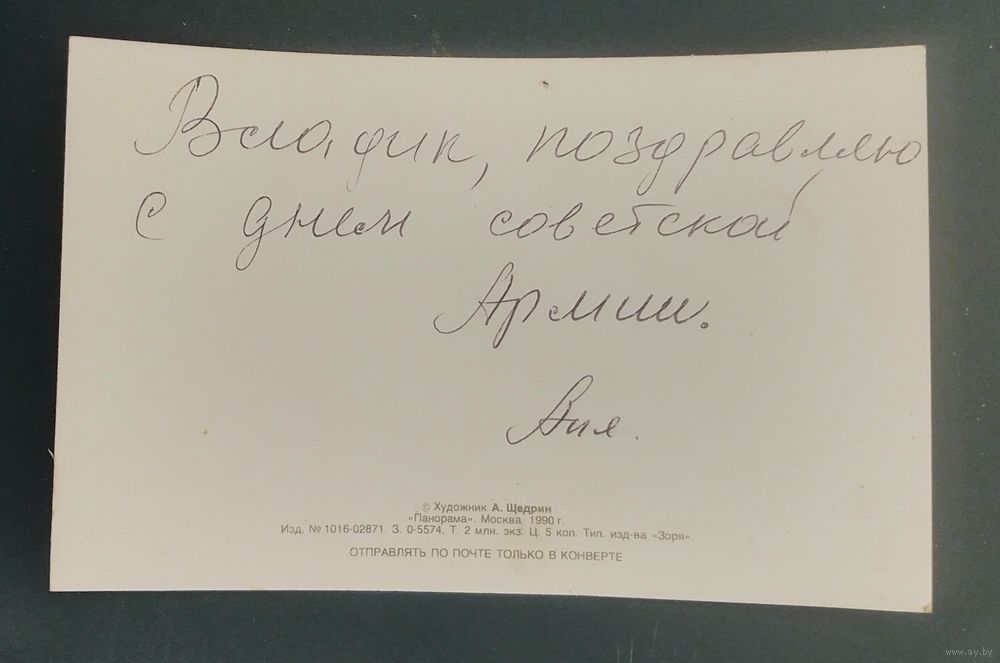 Владик, поздравляю
с днем советской
Армии.
Аня.
© Художник А. Щедрин
«Панорама». Москва. 1990 г.
Изд. № 1016-02871. З. 0-5574. Т. 2 млн. экз. Ц. 5 коп. Тип. изд-ва «Зоря».
ОТПРАВЛЯТЬ ПО ПОЧТЕ ТОЛЬКО В КОНВЕРТЕ
www.ay.by